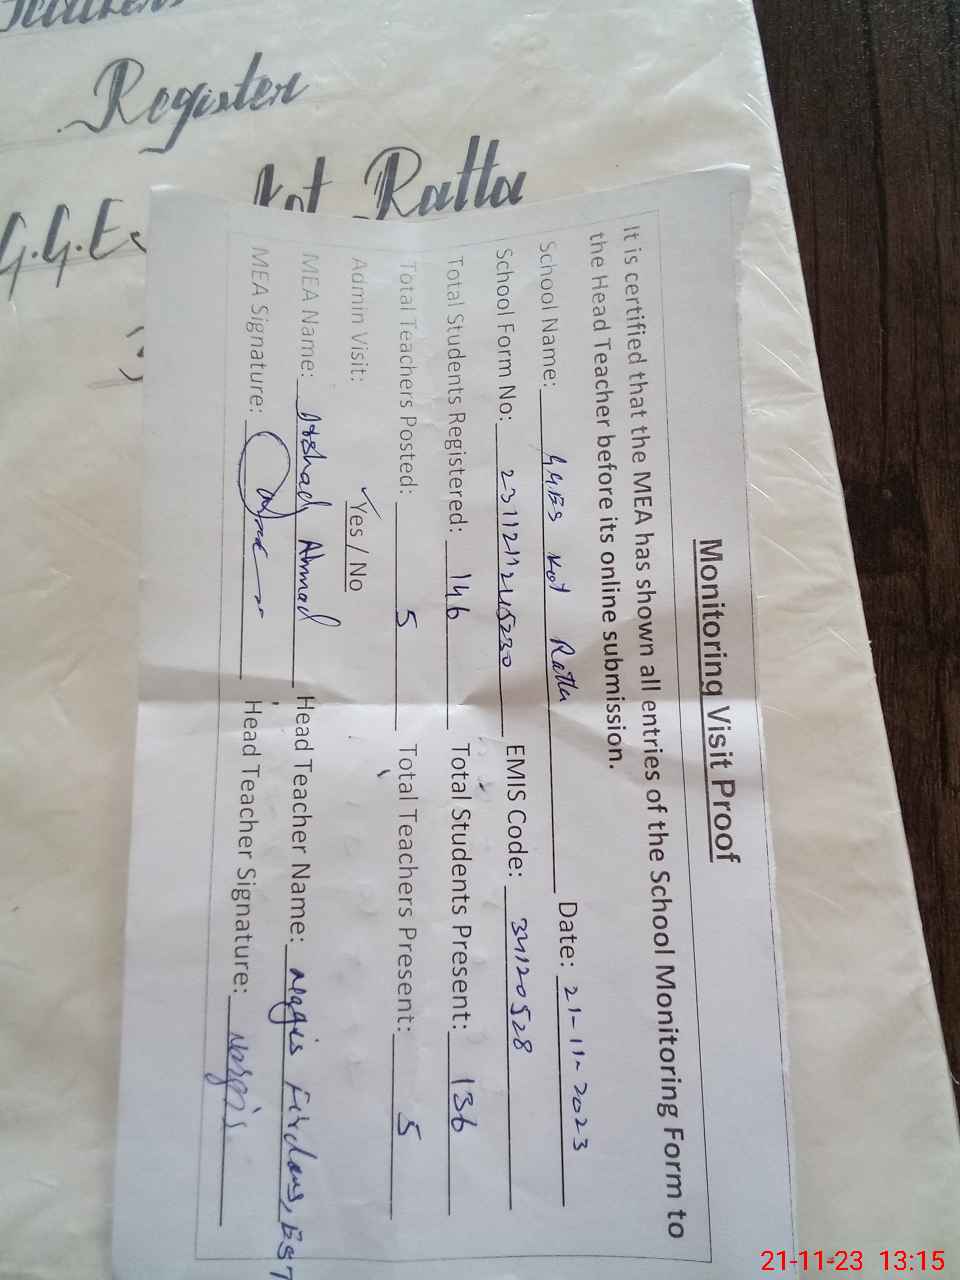 Register
G.G.E. Kot Ratta
Monitoring Visit Proof
It is certified that the MEA has shown all entries of the School Monitoring Form to
the Head Teacher before its online submission.
School Name: GGES Kot Ratta Date: 21-11-2023
School Form No: EMIS Code: 34120528
Total Students Registered: 146 Total Students Present: 136
Total Teachers Posted: 5 Total Teachers Present: 5
Admin Visit: Yes / No
MEA Name: Arshad Ahmad Head Teacher Name: Nargis Firdous, EST
MEA Signature: Head Teacher Signature: Nargis
21-11-23 13:15